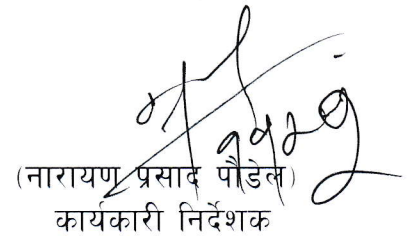 (नारायण प्रसाद पौडेल)
कार्यकारी निर्देशक